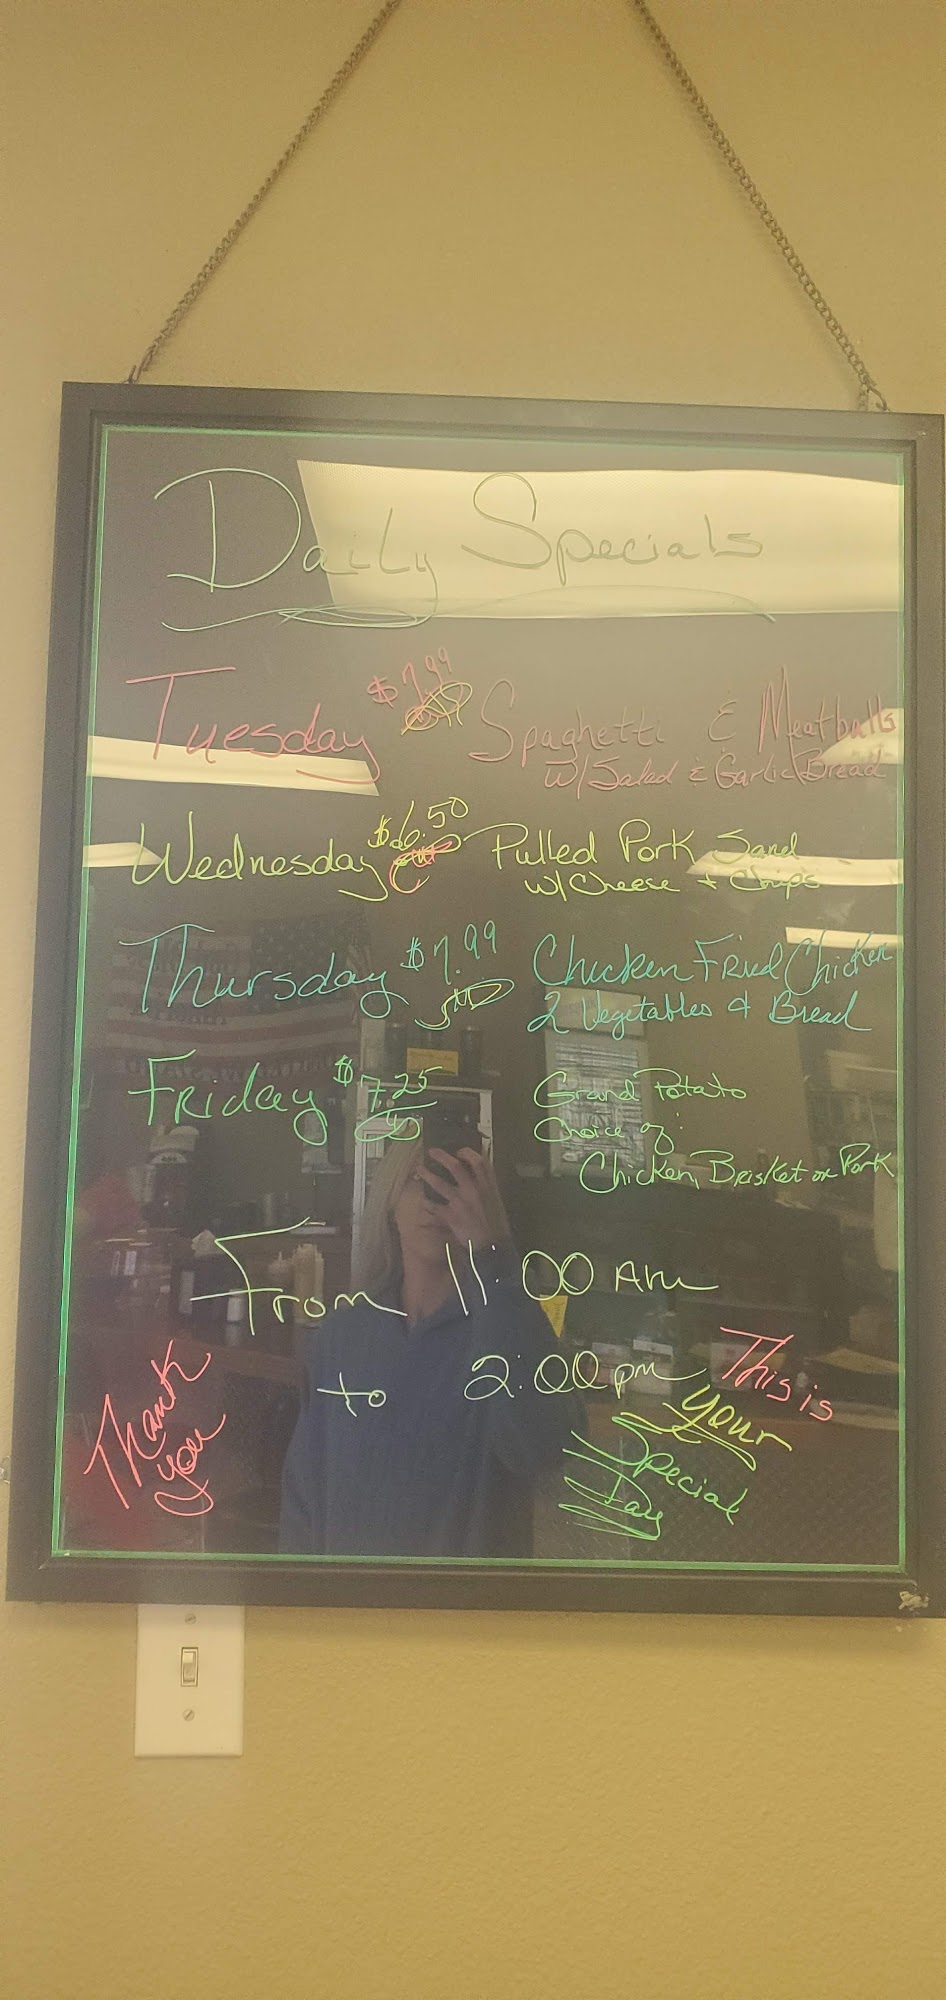 Daily Specials
Tuesday $7.99 Spaghetti & Meatballs
w/Salad & Garlic Bread
Wednesday $6.50 Pulled Pork Sand
w/Cheese + Chips
Thursday $7.99 Chicken Fried Chicken
2 Vegetables & Bread
Friday $7.25 Grand Potato
Choice of:
Chicken, Brisket or Pork
From 11:00 AM
to 2:00 pm
Thank
you
This is
your
Special
Day